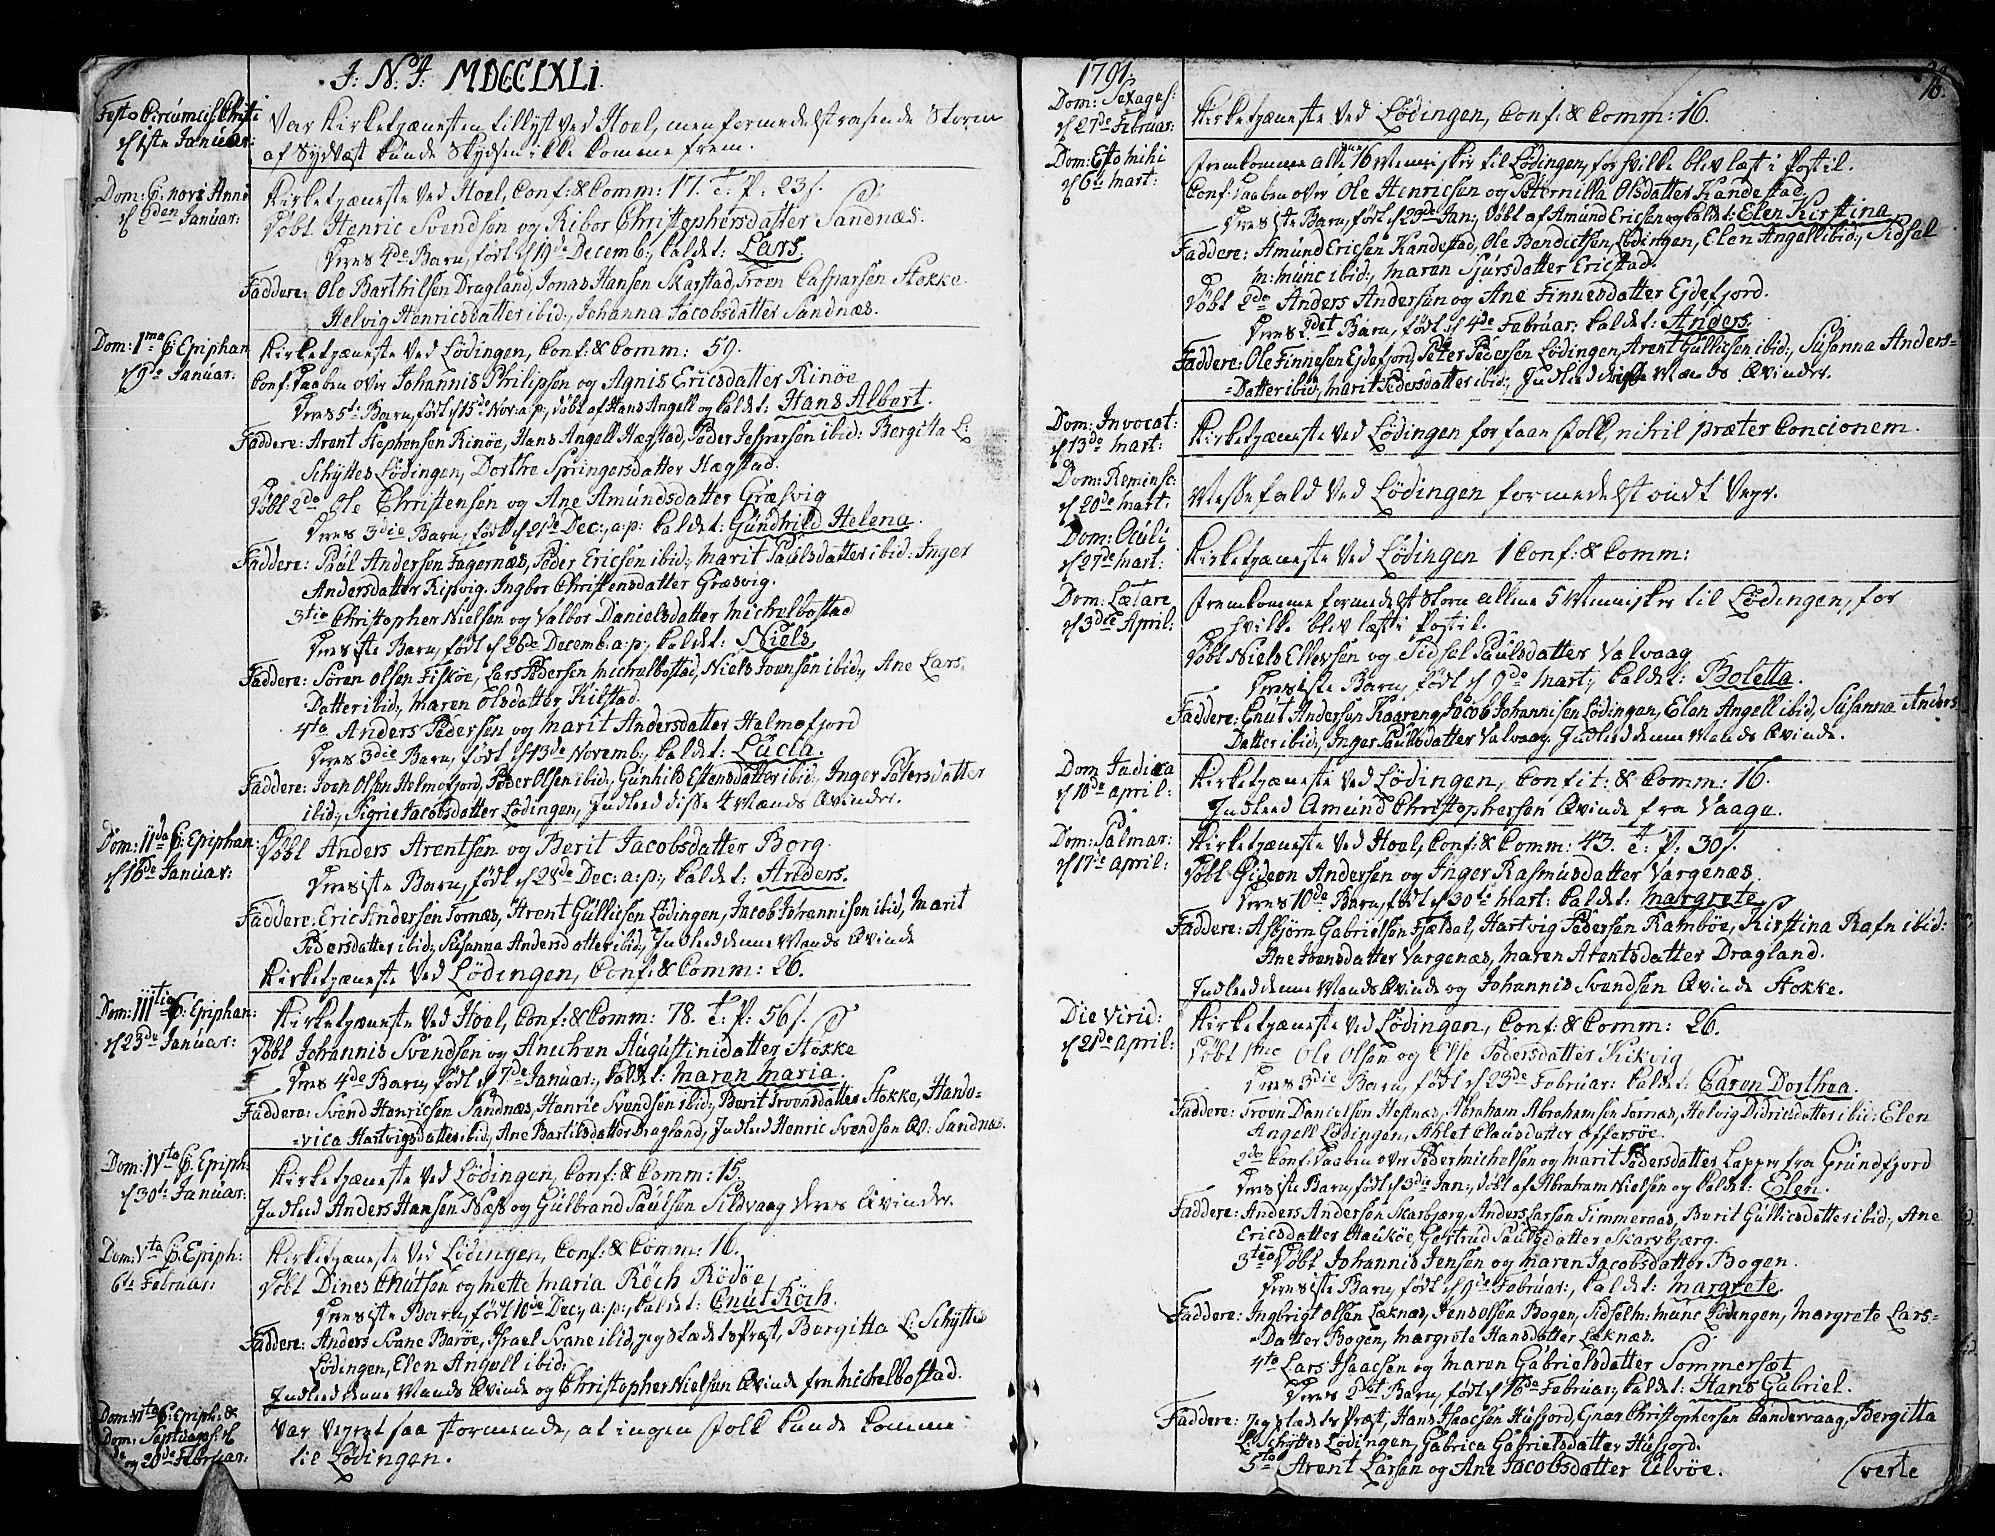 J: N: J: MDCCLXLi
Festo Circúmcis: Christi
d 1ste Januar:
Var Kirketjænesten tillyst ved Hoel, men formedelst rasende Storm
af Sydvest kunde Skydsen ikke komme frem.
Dom: p: novi Anni
d 2den Januar:
Kirketjæneste ved Hoel, Conf: & Comm: 17. T: P: 23 s.
Døbt Henric Svendsen og Ribor Christophersdatter Sandnæs.
Deres 4de Barn, født d 19de Decemb:, kaldet: Lars.
Faddere: Ole Barthilsen Dragland, Jonas Hansen Skarstad, Troen Casparsen Stokke.
Helvig Henricsdatter ibid:, Johanna Jacobsdatter Sandnæs.
Dom: 1ma p: Epiphan
d 9de Januar:
Kirketjæneste ved Lødingen, Conf: & Comm: 59.
Conf: Daaben over Johannis Philipsen og Agnis Ericsdatter Rinøe
Deres 5te Barn, født d 15de Nov: a: p:, døbt af Hans Angell og kaldet: Hans Albert.
Faddere: Arent Stephensen Rinøe, Hans Angell Hægstad, Peder Jespersen ibid: Bergitta L:
Schyttes Lødingen, Dorthe Springersdatter Hægstad.
Døbt 2de Ole Christensen og Ane Amundsdatter Græsvig
Deres 3die Barn, født d 21de Dec:, a: p: kaldet: Gundhild Helena.
Faddere: Paul Andersen Fagernæs, Peder Ericsen ibid:, Marit Paulsdatter ibid: Inger
Andersdatter Ripvig. Ingbor Christensdatter Græsvig.
3tio Christopher Nielsen og Valbor Danielsdatter Michelbostad
Deres 1ste Barn, født d 26de Decemb: a: p:, kaldet: Niels.
Faddere: Søren Olsen Fiskøe, Lars Pedersen Michelbostad, Niels Ivensen ibid:, Ane Lars
Datter ibid:, Maren Olsdatter Kilstad.
4to Anders Pedersen og Marit Andersdatter Halmefjord
Deres 3die Barn, født d 13de Novemb:, kaldet: Lucia.
Faddere: Iven Olsen Helmefjord, Peder Olsen ibid:, Gunhild Ellensdatter ibid:, Inger Petersdatter
ibid:, Sigrie Jacobsdatter Lødingen, Indleed disse 4 Mænds Qvinder.
Dom: IIda p: Epiphan:
d 16de Januar:
Døbt Anders Arentsen og Berit Jacobsdatter Borg.
Deres 1ste Barn, født d 28de Dec: a: p:, kaldet: Anders.
Faddere: Eric Andersen Fornæs, Arent Gullicsen Lødingen, Jacob Johannisen ibid, Marit
Pedersdatter ibid:, Susanna Andersdatter ibid:, Indleed denne Mands Qvinde
Kirketjæneste ved Lødingen, Conf: & Comm: 26.
Dom: IIItia p: Epiphan:
d 23de Januar:
Kirketjæneste ved Hoel, Conf: & Comm: 78. T: P: 56 s.
Døbt Johannis Svendsen og Anichen Augustinidatter Stokke
Deres 4de Barn, født d 7de Januar:, kaldet: Maren Maria.
Faddere: Svend Henricsen Sandnæs, Henric Svendsen ibid:, Berit Troensdatter Stokke, Hand-
-vica Hartvigsdatter ibid:, Ane Bartilsdatter Dragland, Indleed Henric Svendsen Qv: Sandnæs.
Dom: IVta p: Epiph:
d 30te Januar:
Kirketjæneste ved Lødingen, Conf: & Comm: 15.
Indleed Anders Hansen Næss og Gulbrand Paulsen Sildvaag deres Qvinder.
Dom: Vta p: Epiph:
6te Februar:
Kirketjæneste ved Lødingen, Conf: & Comm: 16.
Døbt Dines Cnutsen og Mette Maria Røch Rødøe
Deres 1ste Barn, født 10de Dec:, a: p:, kaldet: Cnut Røch.
Faddere: Anders Svane Barøe, Israel Svane ibid, jeg Stædets Præst, Bergitta L: Schyttes
Lødingen, Elen Angell ibid:
Indleed denne Mands Qvinde og Christopher Nielsen Qvinde fra Michelbostad.
Dom: VIta p: Epiph: &
Dom: Septuages: d
og 20de Februar:
Var Veyret saa stormende, at ingen Folk kunde komme
til Lødingen.
1791.
Dom: Sexages:
d 27de Februar:
Kirketjæneste ved Lødingen, Conf: & Comm: 16.
Dom: Esto mihi
d 6te Mart:
Fremkomme allene 16 Mennisker til Lødingen, for hvilke blev læst i Postil.
Conf: Daaben over Ole Henricsen og Peternilla Olsdatter Kandestad.
Deres 1ste Barn, født d 29de Jan:, døbt af Amund Ericsen og kaldet: Elen Kirstina.
Faddere: Amund Ericsen Kandestad, Ole Bendictsen Lødingen, Elen Angell ibid:, Sidsel
M: Munc ibid:, Maren Sjursdatter Ericstad.
Døbt 2do Anders Andersen og Ane Finnesdatter Ejdefjord.
Deres 2det Barn, født d 4de Februar: kaldet: Anders.
Faddere: Ole Finnesen Ejdefjord, Peter Pedersen Lødingen, Arent Gullicsen ibid:, Susanna Anders-
-Datter ibid, Marit Pedersdatter ibid:, Indleed disse Mænds Qvinder.
Dom: Invocat:
d 13de Mart:
Kirketjæneste ved Lødingen for faae Folk, nihil præter Concionem.
Dom: Reminsc:
d 20de Mart:
Messefald ved Lødingen formedelst ondt Vejr.
Dom: Oculi
d 27de Mart:
Kirketjæneste ved Lødingen 1 Conf: & Comm:
Dom: Lætare
d 3die April:
Fremkomme formedelst Storm allene 5 Mennisker til Lødingen, for
hvilke blev læst i Postil.
Døbt Niels Ellevsen og Sidsel Paulsdatter Valvaag
Deres 1ste Barn, født d 9de Mart:, kaldet: Boletta.
Faddere: Cnut Andersen Kaareng, Jacob Johannisen Lødingen, Elen Angell ibid, Susanna Anders
Datter ibid:, Inger Paulsdatter Valvaag, Indleed denne Mands Qvinde.
Dom Judica
d 10de April:
Kirketjæneste ved Lødingen, Confit: & Comm: 16.
Indleed Amund Christophersen Qvinde fra Vaage.
Dom: Palmar:
d 17de April:
Kirketjæneste ved Hoel, Conf: & Comm: 43. T: P: 30 s.
Døbt Gideon Andersen og Inger Rasmusdatter Vargenæs.
Deres 10de Barn, født d 30te Mart: kaldet: Margrete.
Faddere: Asbjørn Gabrielsen Fjeldal, Hartvig Pedersen Rambøe, Kirstina Rafn ibid:
Ane Ivensdatter Vargenæs, Maren Arentsdatter Dragland.
Indleed denne Mands Qvinde og Johannis Svendsen Qvinde Stokke.
Die Virid:
d 21de April:
Kirketjæneste ved Lødingen, Conf: & Comm: 26.
Døbt 1mo Ole Olsen og Else Pedersdatter Kikvig
Deres 3die Barn, født d 23de Februar: kaldet: Caren Dorthea.
Faddere: Troen Danielsen Hestnæs, Abraham Abrahamsen Fornæs, Helvig Didricsdatter ibid: Elen
Angell Lødingen, Ahlet Clausdatter Offersøe.
2de Conf: Daaben over Peder Michelsen og Marit Pedersdatter Lapper fra Grundfjord
Deres 1ste Barn, født d 3die Jan:, døbt af Abraham Nielsen og kaldet: Elen.
Faddere: Anders Andersen Skarbjerg, Anders Larsen Timmernæs, Berit Gullicsdatter ibid:, Ane
Ericsdatter Haukøe, Gertrud Paulsdatter Skarvbjærg.
3tio Døbt Johannis Jensen og Maren Jacobsdatter Bogen.
Deres 1ste Barn, født d 9de Februar:, kaldet: Margrete.
Faddere: Ingbrigt Olsen Læknæs, Jens Olsen Bogen, Sidsel M: Munc Lødingen, Margrete Lars-
-Datter Bogen, Margrete Hansdatter Læknæs.
4to Lars Isaacsen og Maren Gabrielsdatter Sommersæt
Deres 2det Barn, født d 16de Februar:, kaldet: Hans Gabriel.
Faddere: Jeg Stædets Præst, Hans Isaacsen Husfjord, Ejnar Christophersen Vandervaag, Bergitta
L: Schyttes Lødingen, Gabrica Gabrielsdatter Husjord.
5to Arent Larsen og Ane Jacobsdatter Ulvøe.
verte